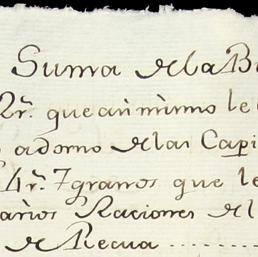 Suma de la B
2r. que asimismo le
adorno de las Capi
4r. 7 granos que le
años Raciones de l
de Recua ..........